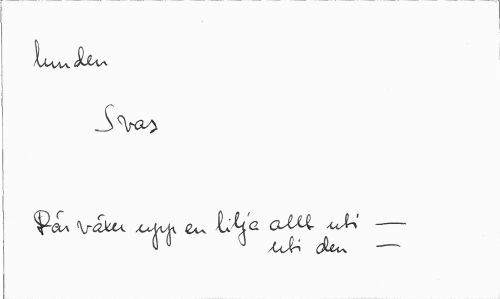 lunden
Svar
Där växer upp en lilja allt uti —
uti den —